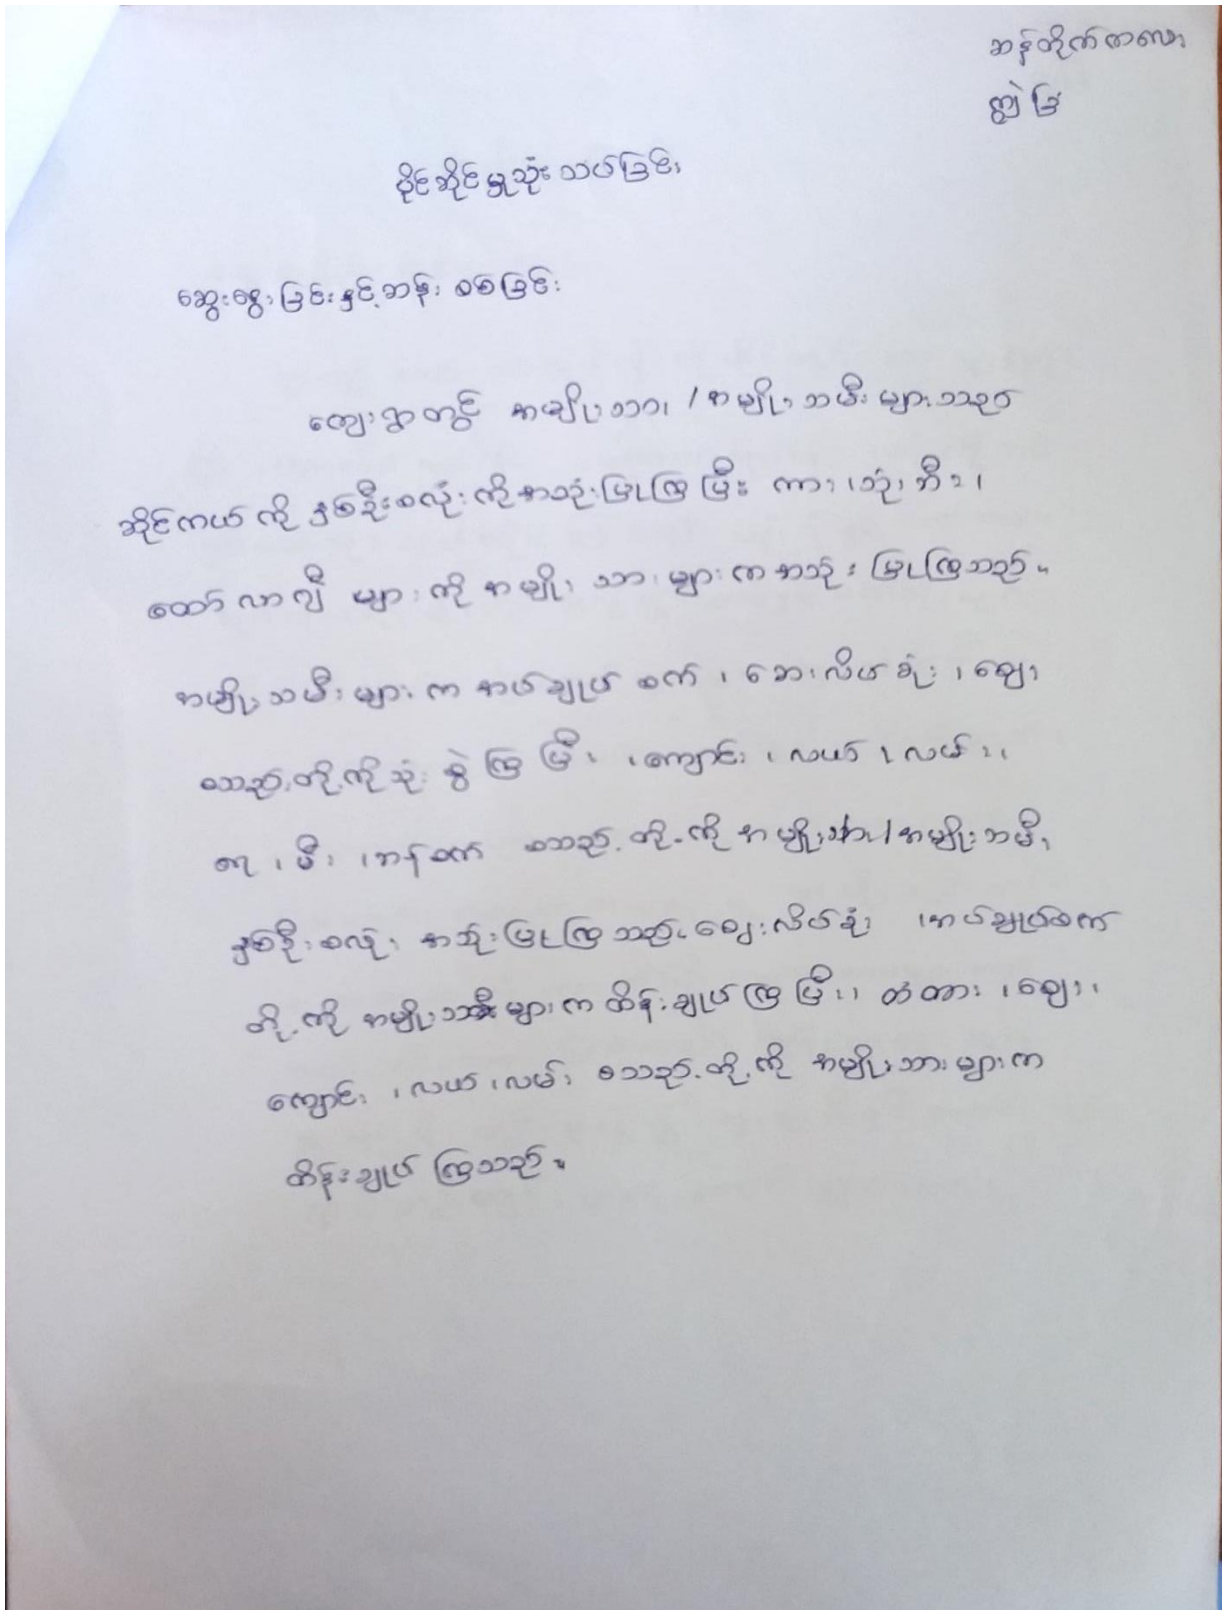 ဆန်တိုက်ကလေး
ကျွဲခြံ
ပိုင်ဆိုင်မှုသုံးသပ်ခြင်း
ဆွေးနွေးခြင်းနှင့်ဆန်းစစ်ခြင်း
ကျေးရွာတွင် အမျိုးသား / အမျိုးသမီးများသည်
ဆိုင်ကယ်ကို နှစ်ဦးစလုံးကိုအသုံးပြုကြပြီး ကား၊သုံးဘီး၊
ထော်လာဂျီ များကို အမျိုးသားများကအသုံးပြုကြသည်။
အမျိုးသမီးများက အပ်ချုပ်စက်၊ ဆေးလိပ်ခုံး၊ ဈေး
စသည့်တို့ကိုသုံးစွဲကြပြီး ၊ကျောင်း ၊ လယ် ၊ လမ်း၊
ရေ ၊ မီး ၊စက် စသည့်တို့ကို အမျိုးသား/အမျိုးသမီး
နှစ်ဦးစလုံး အသုံးပြုကြသည်၊ ဈေးလိပ်ခုံး ၊အပ်ချုပ်စက်
တို့ကို အမျိုးသမီးများကထိန်းချုပ်ကြပြီး၊ တံတား ၊ဈေး၊
ကျောင်း ၊လယ်၊လမ်း စသည့်တို့ကို အမျိုးသားများက
ထိန်းချုပ်ကြသည်။